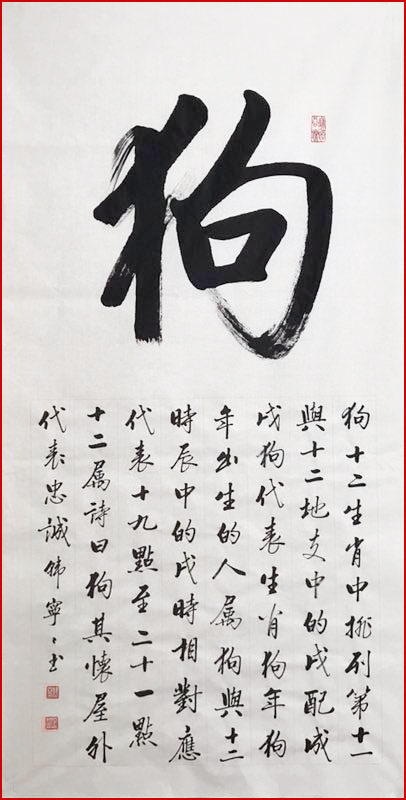 狗
狗十二生肖中排列第十一
與十二地支中的戌配成
戌狗代表生肖狗年狗
年出生的人属狗與十二
時辰中的戌時相對應
代表十九點至二十一點
十二属詩曰狗其懷屋外
代表忠誠 韩寧〻书